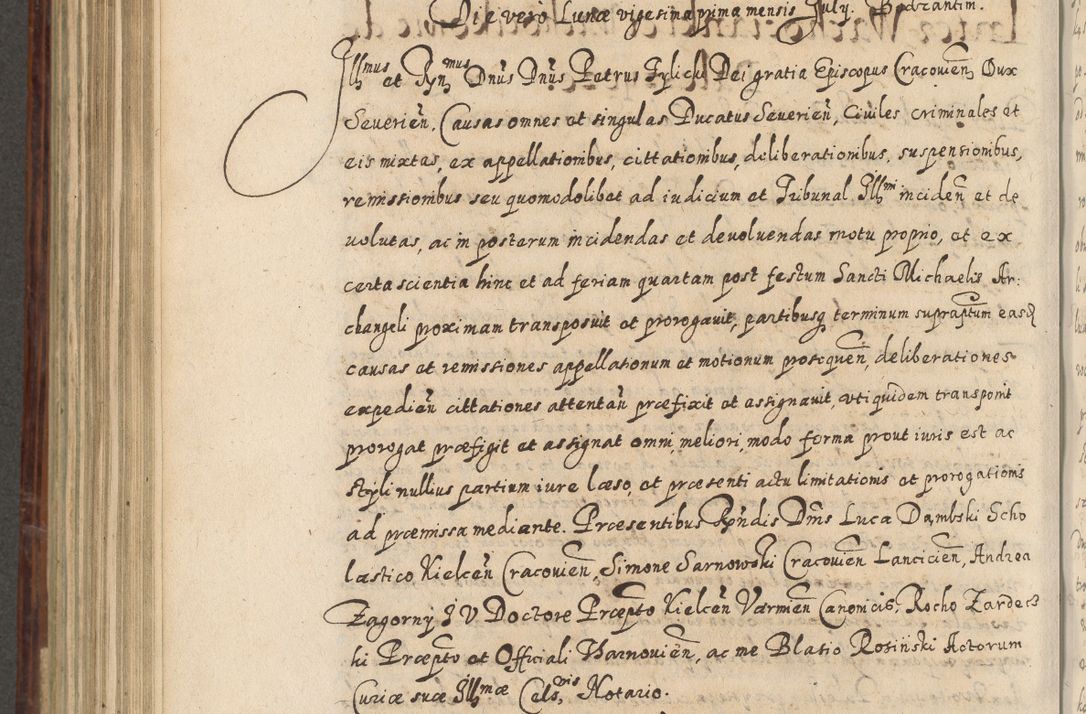 Die vero Lunæ vigesima prima mensis July. Bodzantin.
Illmus et Rndmus Dnus Dnus Petrus Tylicki Dei gratia Episcopus Cracovien, Dux
Severien. Causas omnes et singulas Ducatus Severien, Civiles criminales et
eis mixtas, ex appellationibus, cittationibus, deliberationibus, suspensionibus,
remissionibus seu quomodolibet ad iudicium et Tribunal Illmi inciden et de
volutas, ac in posterum incidendas et devoluendas motu proprio, et ex
certa scientia hinc et ad feriam quartam post festum Sancti Michaelis Ar:
changeli proximam transposuit et prorogavit, partibusq terminum supraptum easd
causas et remissiones appellationum et motionum prosequen, deliberationes
expedien cittationes attentan præfixit et assignavit, uti quidem transponit
prorogat præfigit et assignat omni, meliori, modo forma prout iuris est ac
styli nullius partium iure læso, et præsenti actu limitationis et prorogationis
ad præmissa mediante. Præsentibus Rndis Dnis Luca Dąmbski Scho
lastico Kielcen Cracovien, Simone Sarnowski Cracovien Lancicien, Andrea
Zagorny I V Doctore Præpto Kielcen Varmien Canonicis, Rocho Zardec
ki Præpto et Officiali Tarnovien, ac me Blasio Rosinski Actorum
Curiæ suæ Illmæ Celsnis Notario.